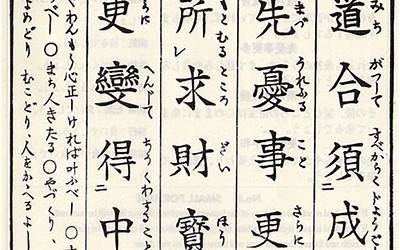 みち がつして すべからく
道合須成二
うれふる こと さらに
先憂事更
もとむるところ ざい ほ
所レ求財寶
へんじて ちうくわすること
更變得二中
くわんもう心正しければ叶ふべし ○
べし ○まち人きたる ○やづくり、
よめどり むこどり、人をかゝるよし